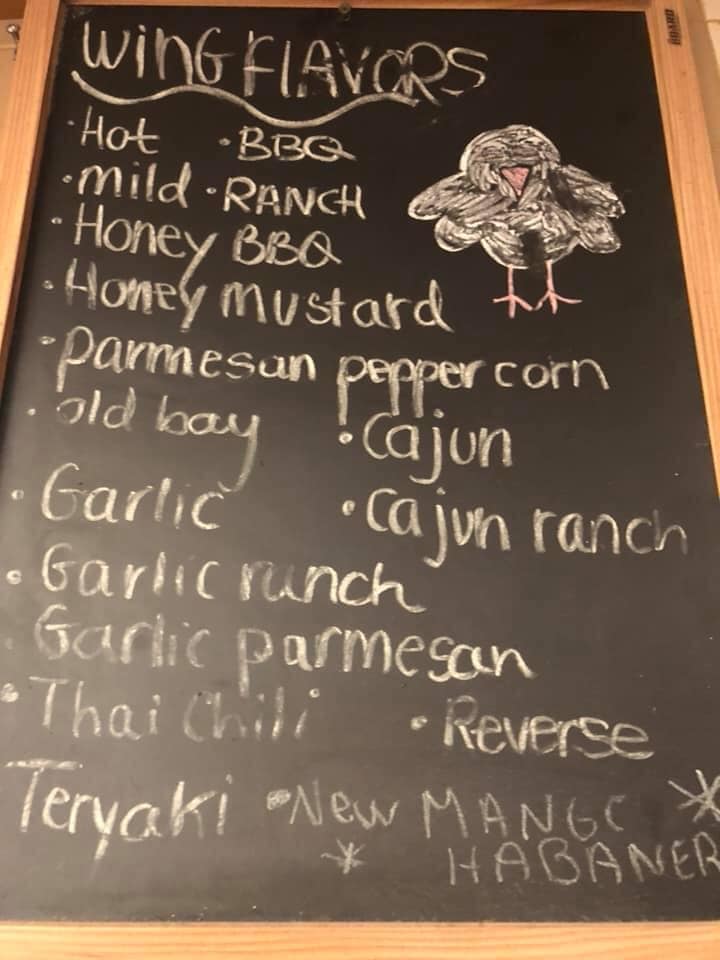 WING FLAVORS
·Hot ·BBQ
·mild ·RANCH
·Honey BBQ
·Honey mustard
·parmesan pepper corn
·old bay ·Cajun
·Garlic ·Cajun ranch
·Garlic ranch
Garlic parmesan
·Thai Chili ·Reverse
Teryaki ·New MANGO *
* HABANER